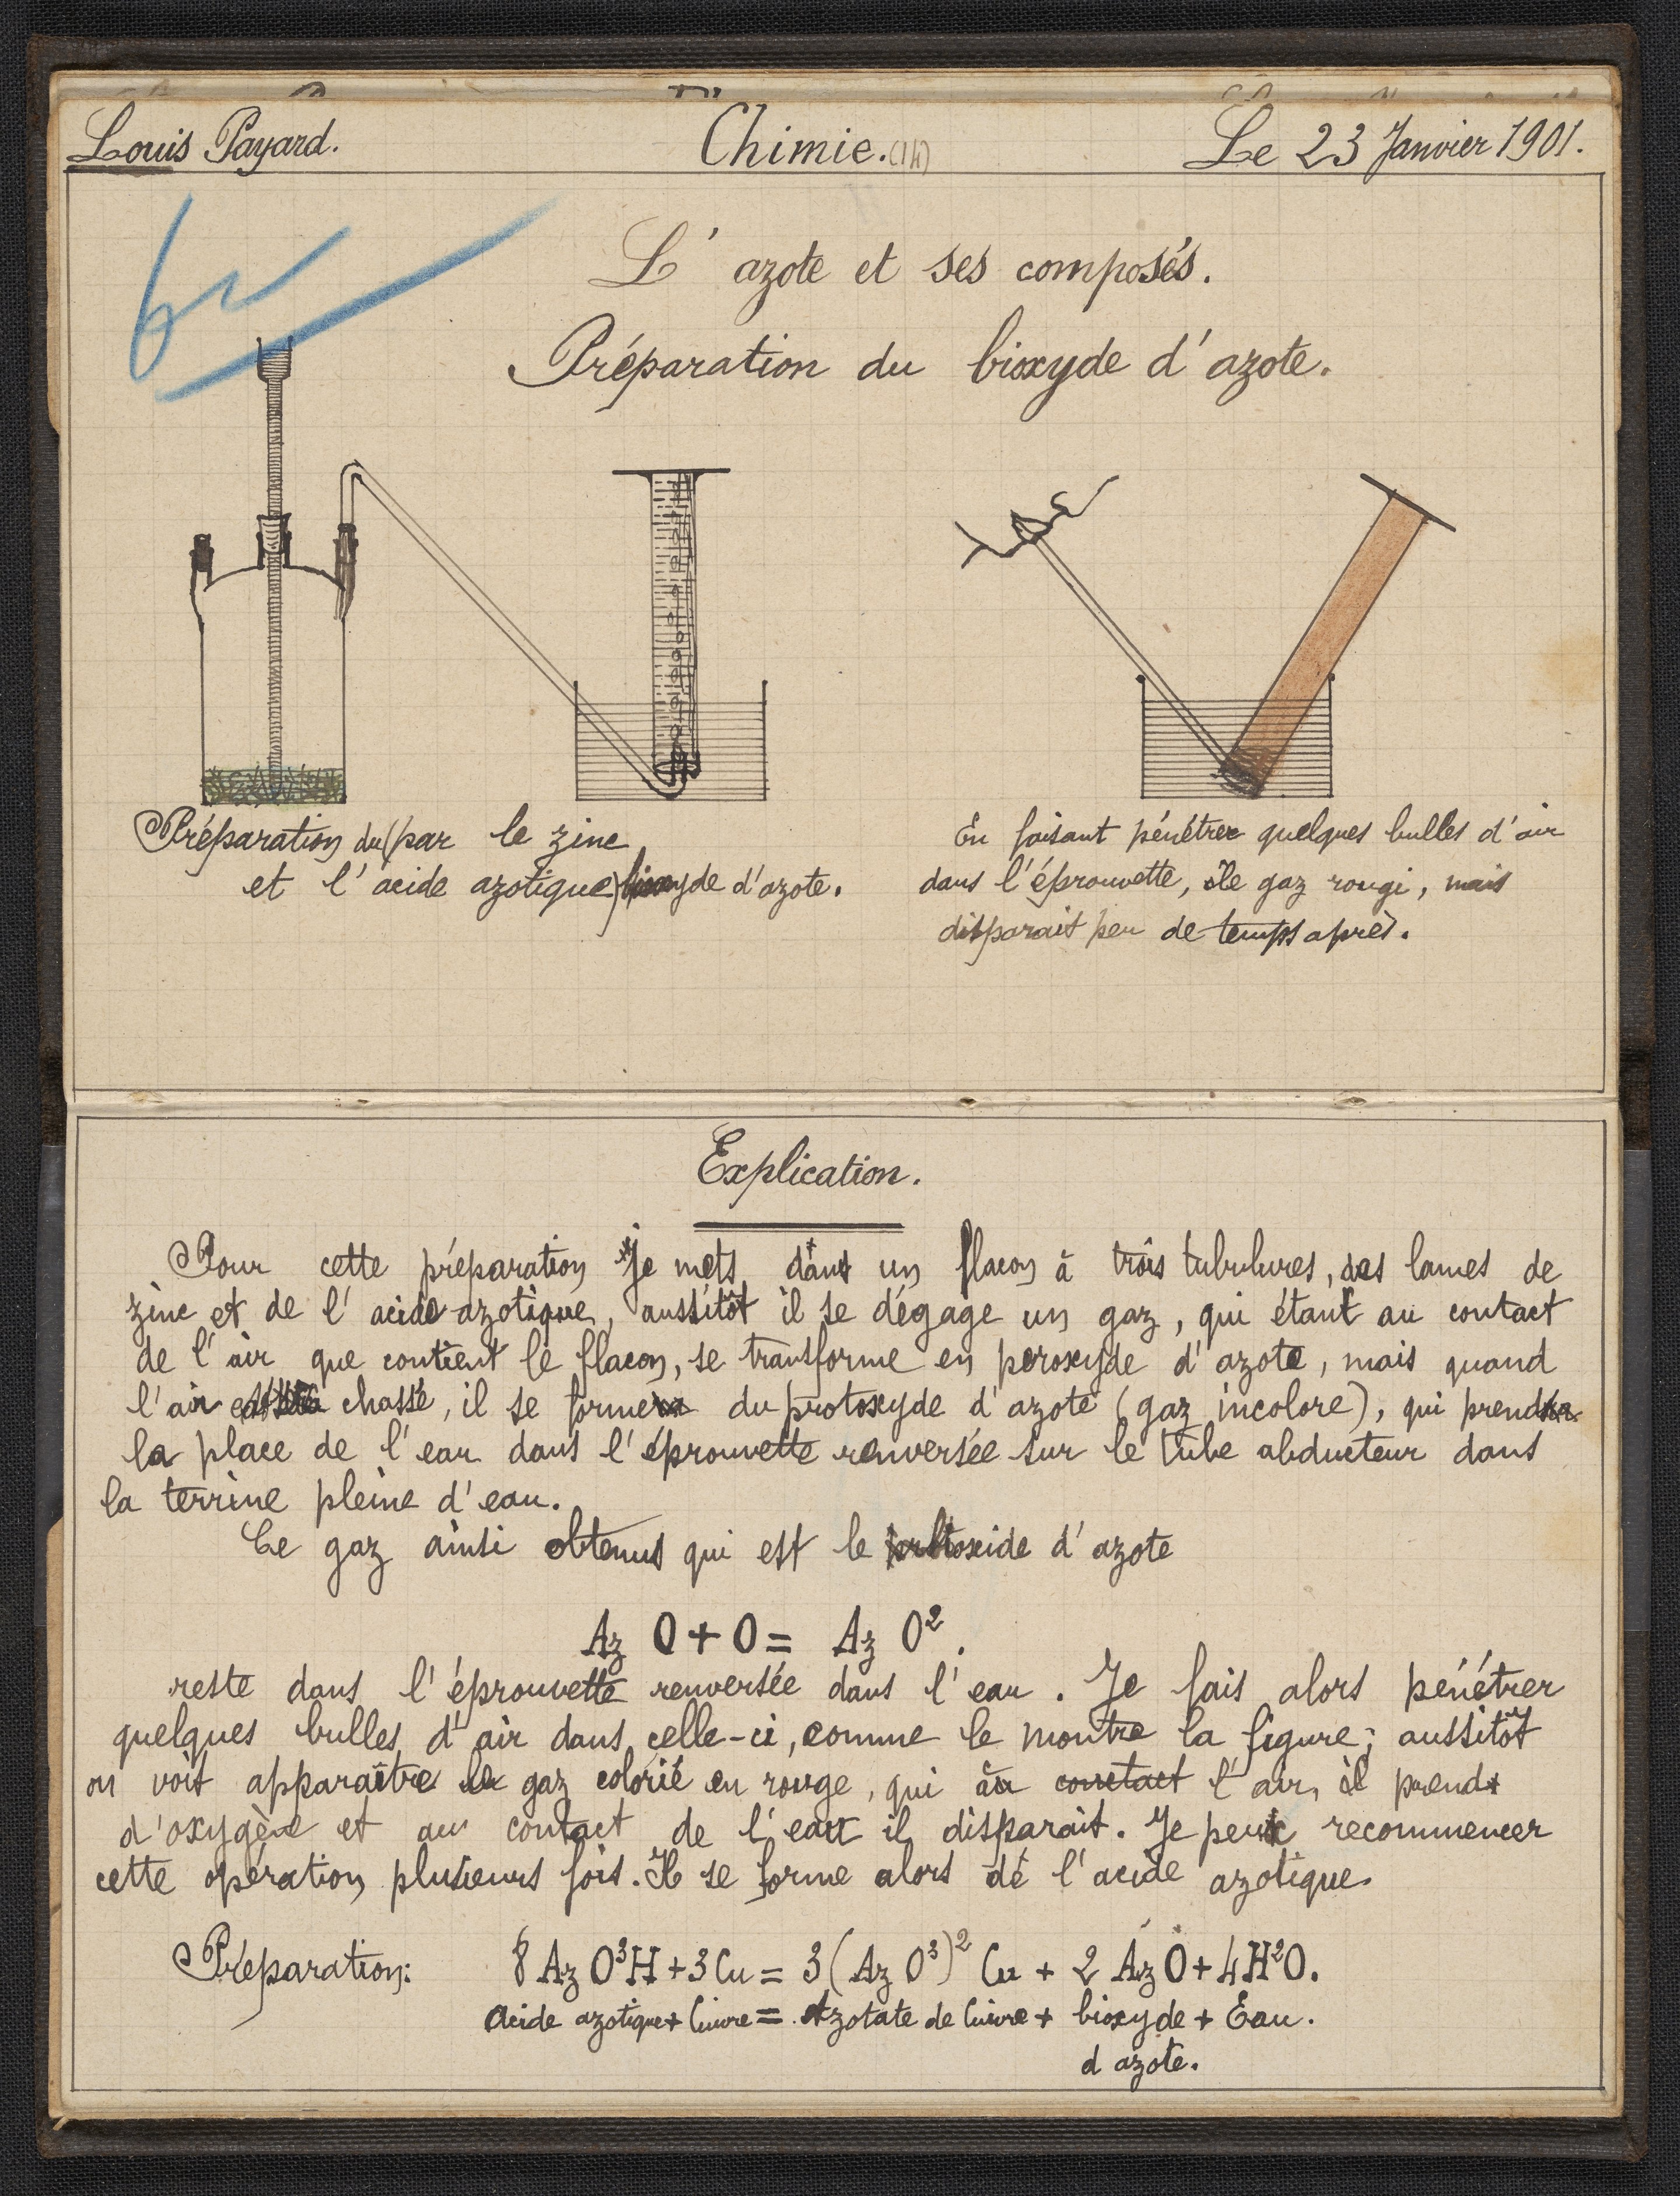 Louis Payard.
Chimie. (14)
Le 23 Janvier 1901.
L' azote et ses composés.
Préparation du bioxyde d'azote.
Préparation du (par le zinc
et l'acide azotique) bioxyde d'azote.
En faisant pénétrer quelques bulles d'air
dans l'éprouvette, le gaz rougi, mais
disparait peu de temps après.
Explication.
Pour cette préparation je mets dans un flacon à trois tubulures, des lames de
zinc et de l'acide azotique, aussitôt il se dégage un gaz, qui étant au contact
de l'air que contient le flacon, se transforme en peroxyde d'azote, mais quand
l'air chassé, il se forme du protoxyde d'azote (gaz incolore), qui prend
la place de l'eau dans l'éprouvette renversée sur le tube abducteur dans
la terrine pleine d'eau.
Ce gaz ainsi obtenus qui est le d'azote
Az O + O = Az O².
reste dans l'éprouvette renversée dans l'eau. Je fais alors pénétrer
quelques bulles d'air dans celle-ci, comme le montre la figure; aussitôt
on voit apparaître gaz colorié en rouge, qui au contact l'air, il prend
d'oxygène et au contact de l'eau il disparait. Je peux recommencer
cette opération plusieurs fois. Il se forme alors de l'acide azotique.
Préparation: 8 Az O³H + 3 Cu = 3 (Az O³)² Cu + 2 Az O + 4 H²O.
Acide azotique + Cuivre = Azotate de Cuivre + bioxyde + Eau.
d azote.